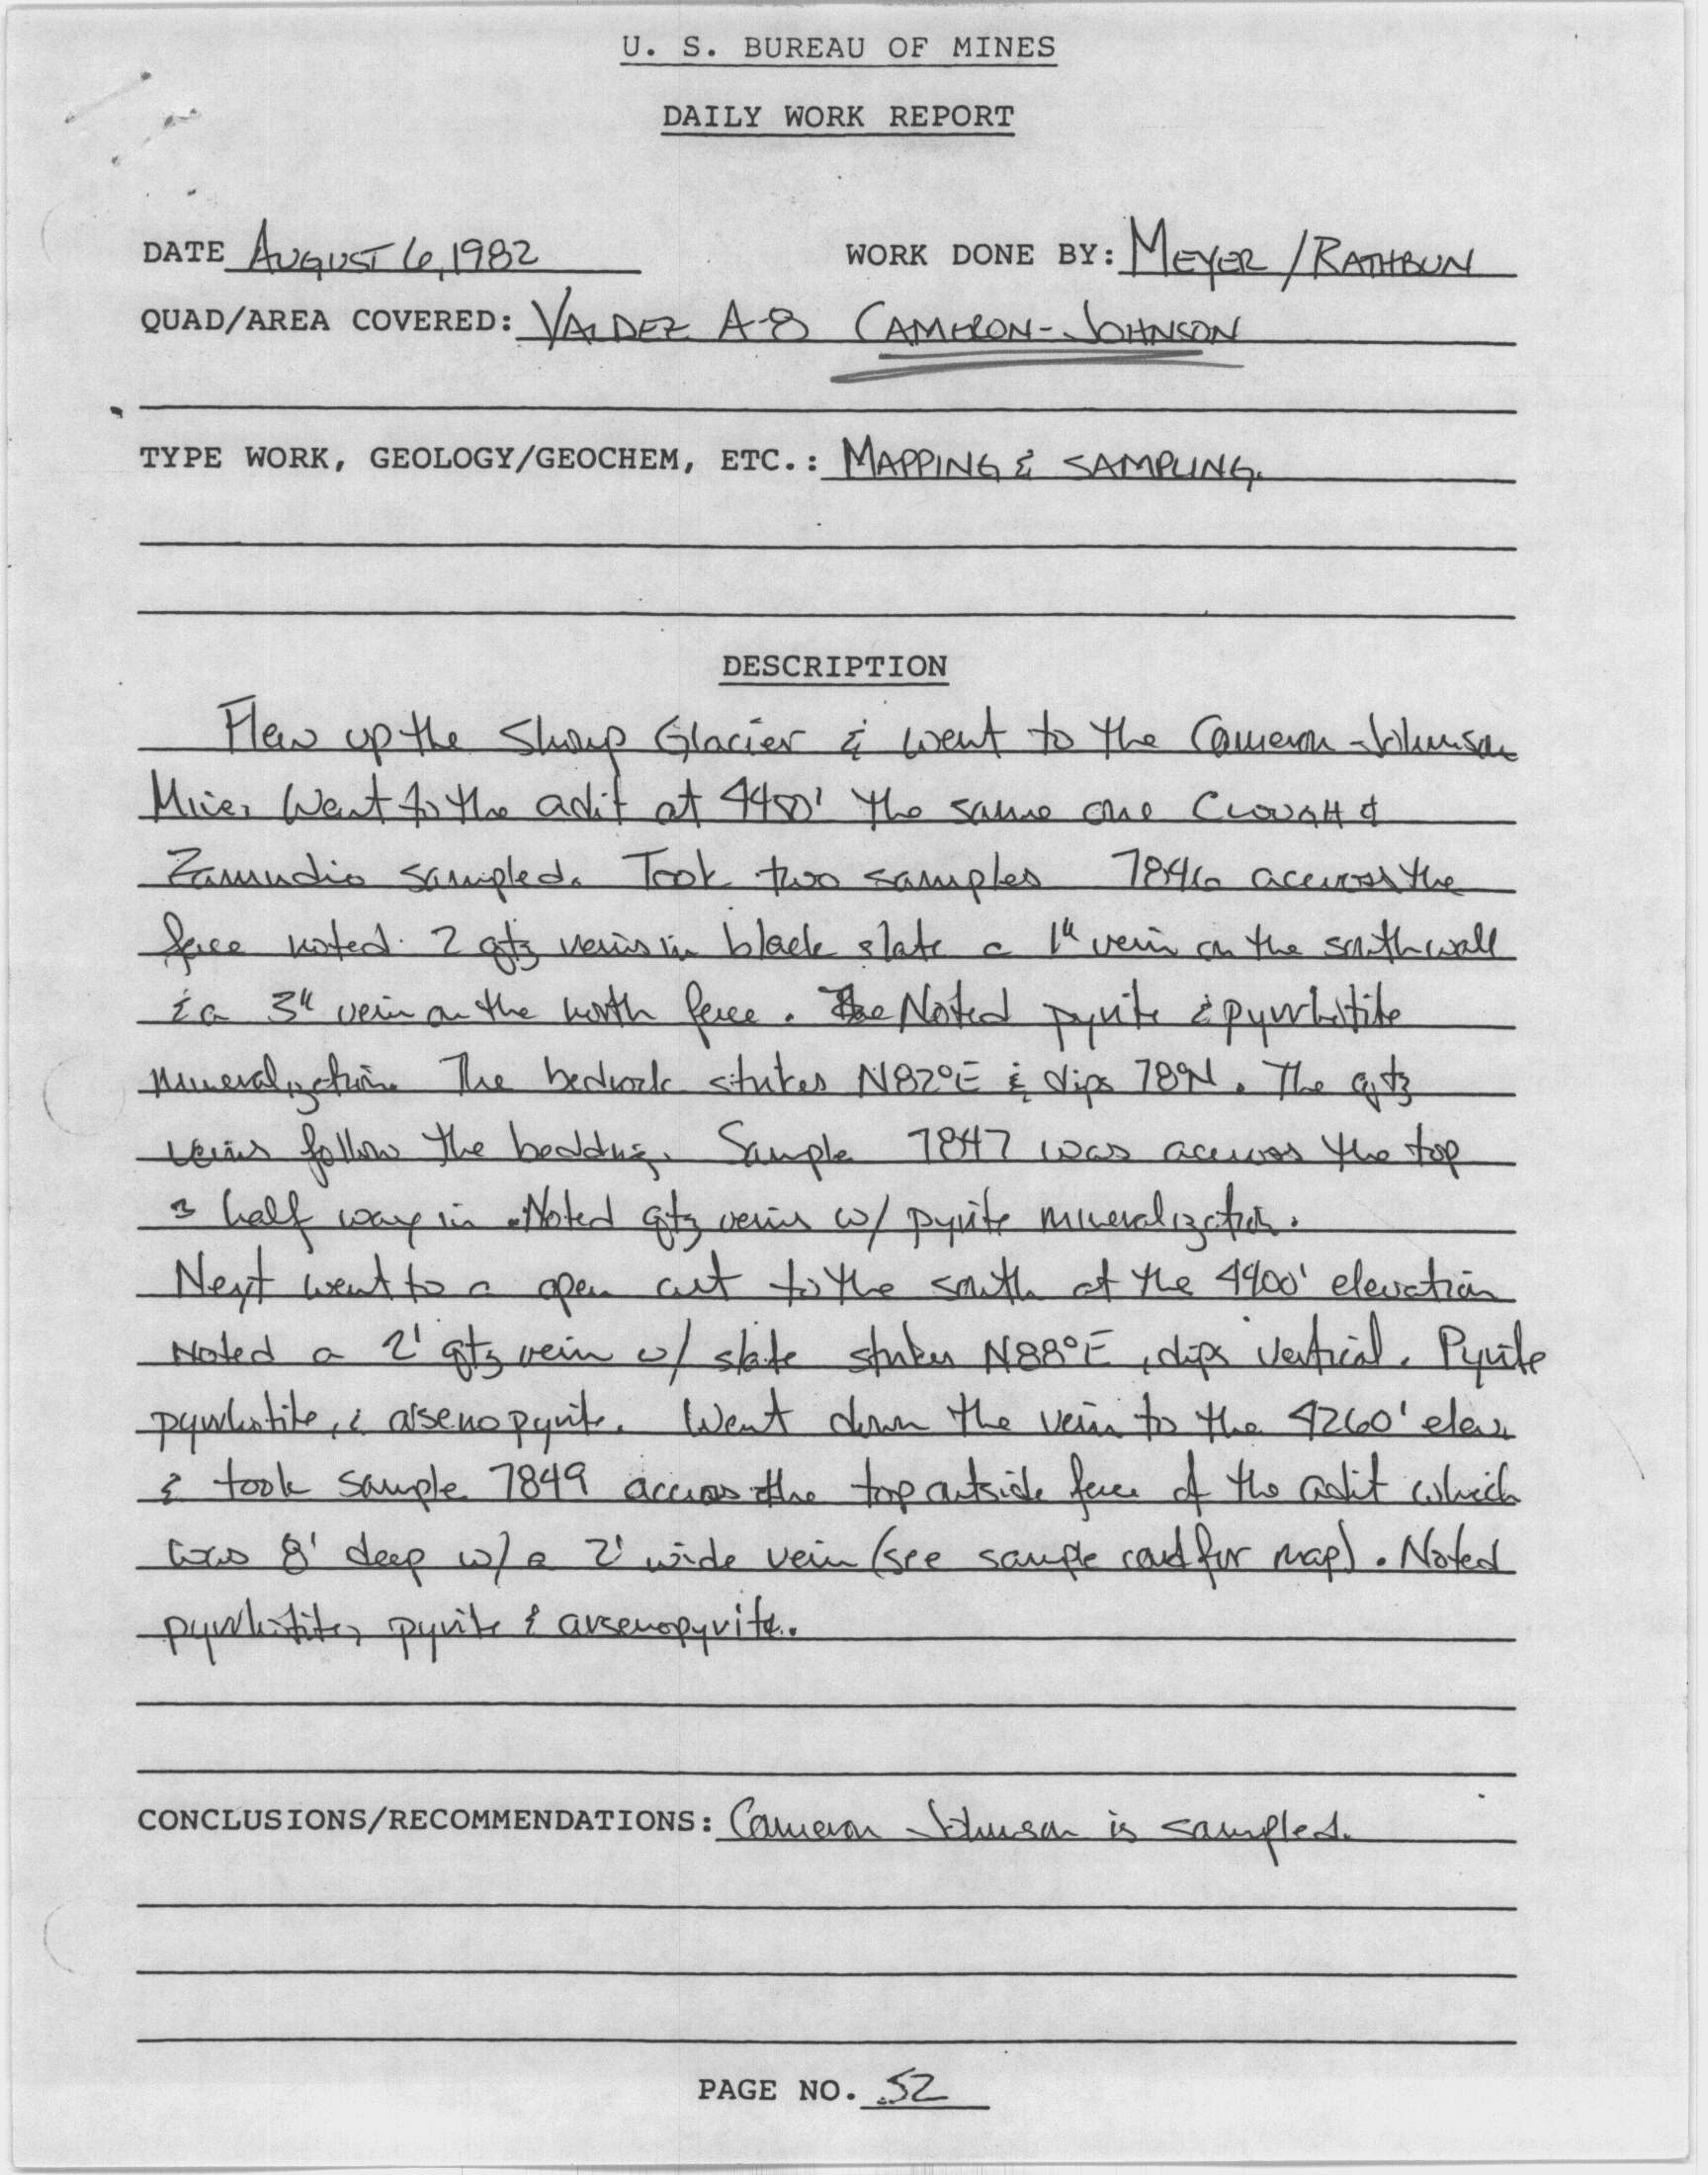 U. S. BUREAU OF MINES
DAILY WORK REPORT
DATE AUGUST 6, 1982 WORK DONE BY: MEYER / RATHBUN
QUAD/AREA COVERED: VALDEZ A-8 CAMERON-JOHNSON
TYPE WORK, GEOLOGY/GEOCHEM, ETC.: MAPPING & SAMPLING.
DESCRIPTION
Flew up the Shoup Glacier & went to the Cameron-Johnson
Mine. Went to the adit at 4450' the same one CLOUGH &
Zamudio sampled. Took two samples 7846 accross the
face noted 2 qtz veins in black slate a 1" vein on the south wall
& a 3" vein on the north face. Noted pyrite & pyrrhotite
mineralization. The bedrock strikes N82°E & dips 78°N. The qtz
veins follow the bedding. Sample 7847 was accross the top
half way in. Noted qtz veins w/ pyrite mineralization.
Next went to a open cut to the south at the 4400' elevation
Noted a 2' qtz vein w/ slate strikes N88°E, dips vertical. Pyrite
pyrrhotite, & arsenopyrite. Went down the vein to the 4260' elev.
& took sample 7849 accross the top outside face of the adit which
was 8' deep w/ a 2' wide vein (see sample card for map). Noted
pyrrhotite, pyrite & arsenopyrite.
CONCLUSIONS/RECOMMENDATIONS: Cameron Johnson is sampled.
PAGE NO. 52